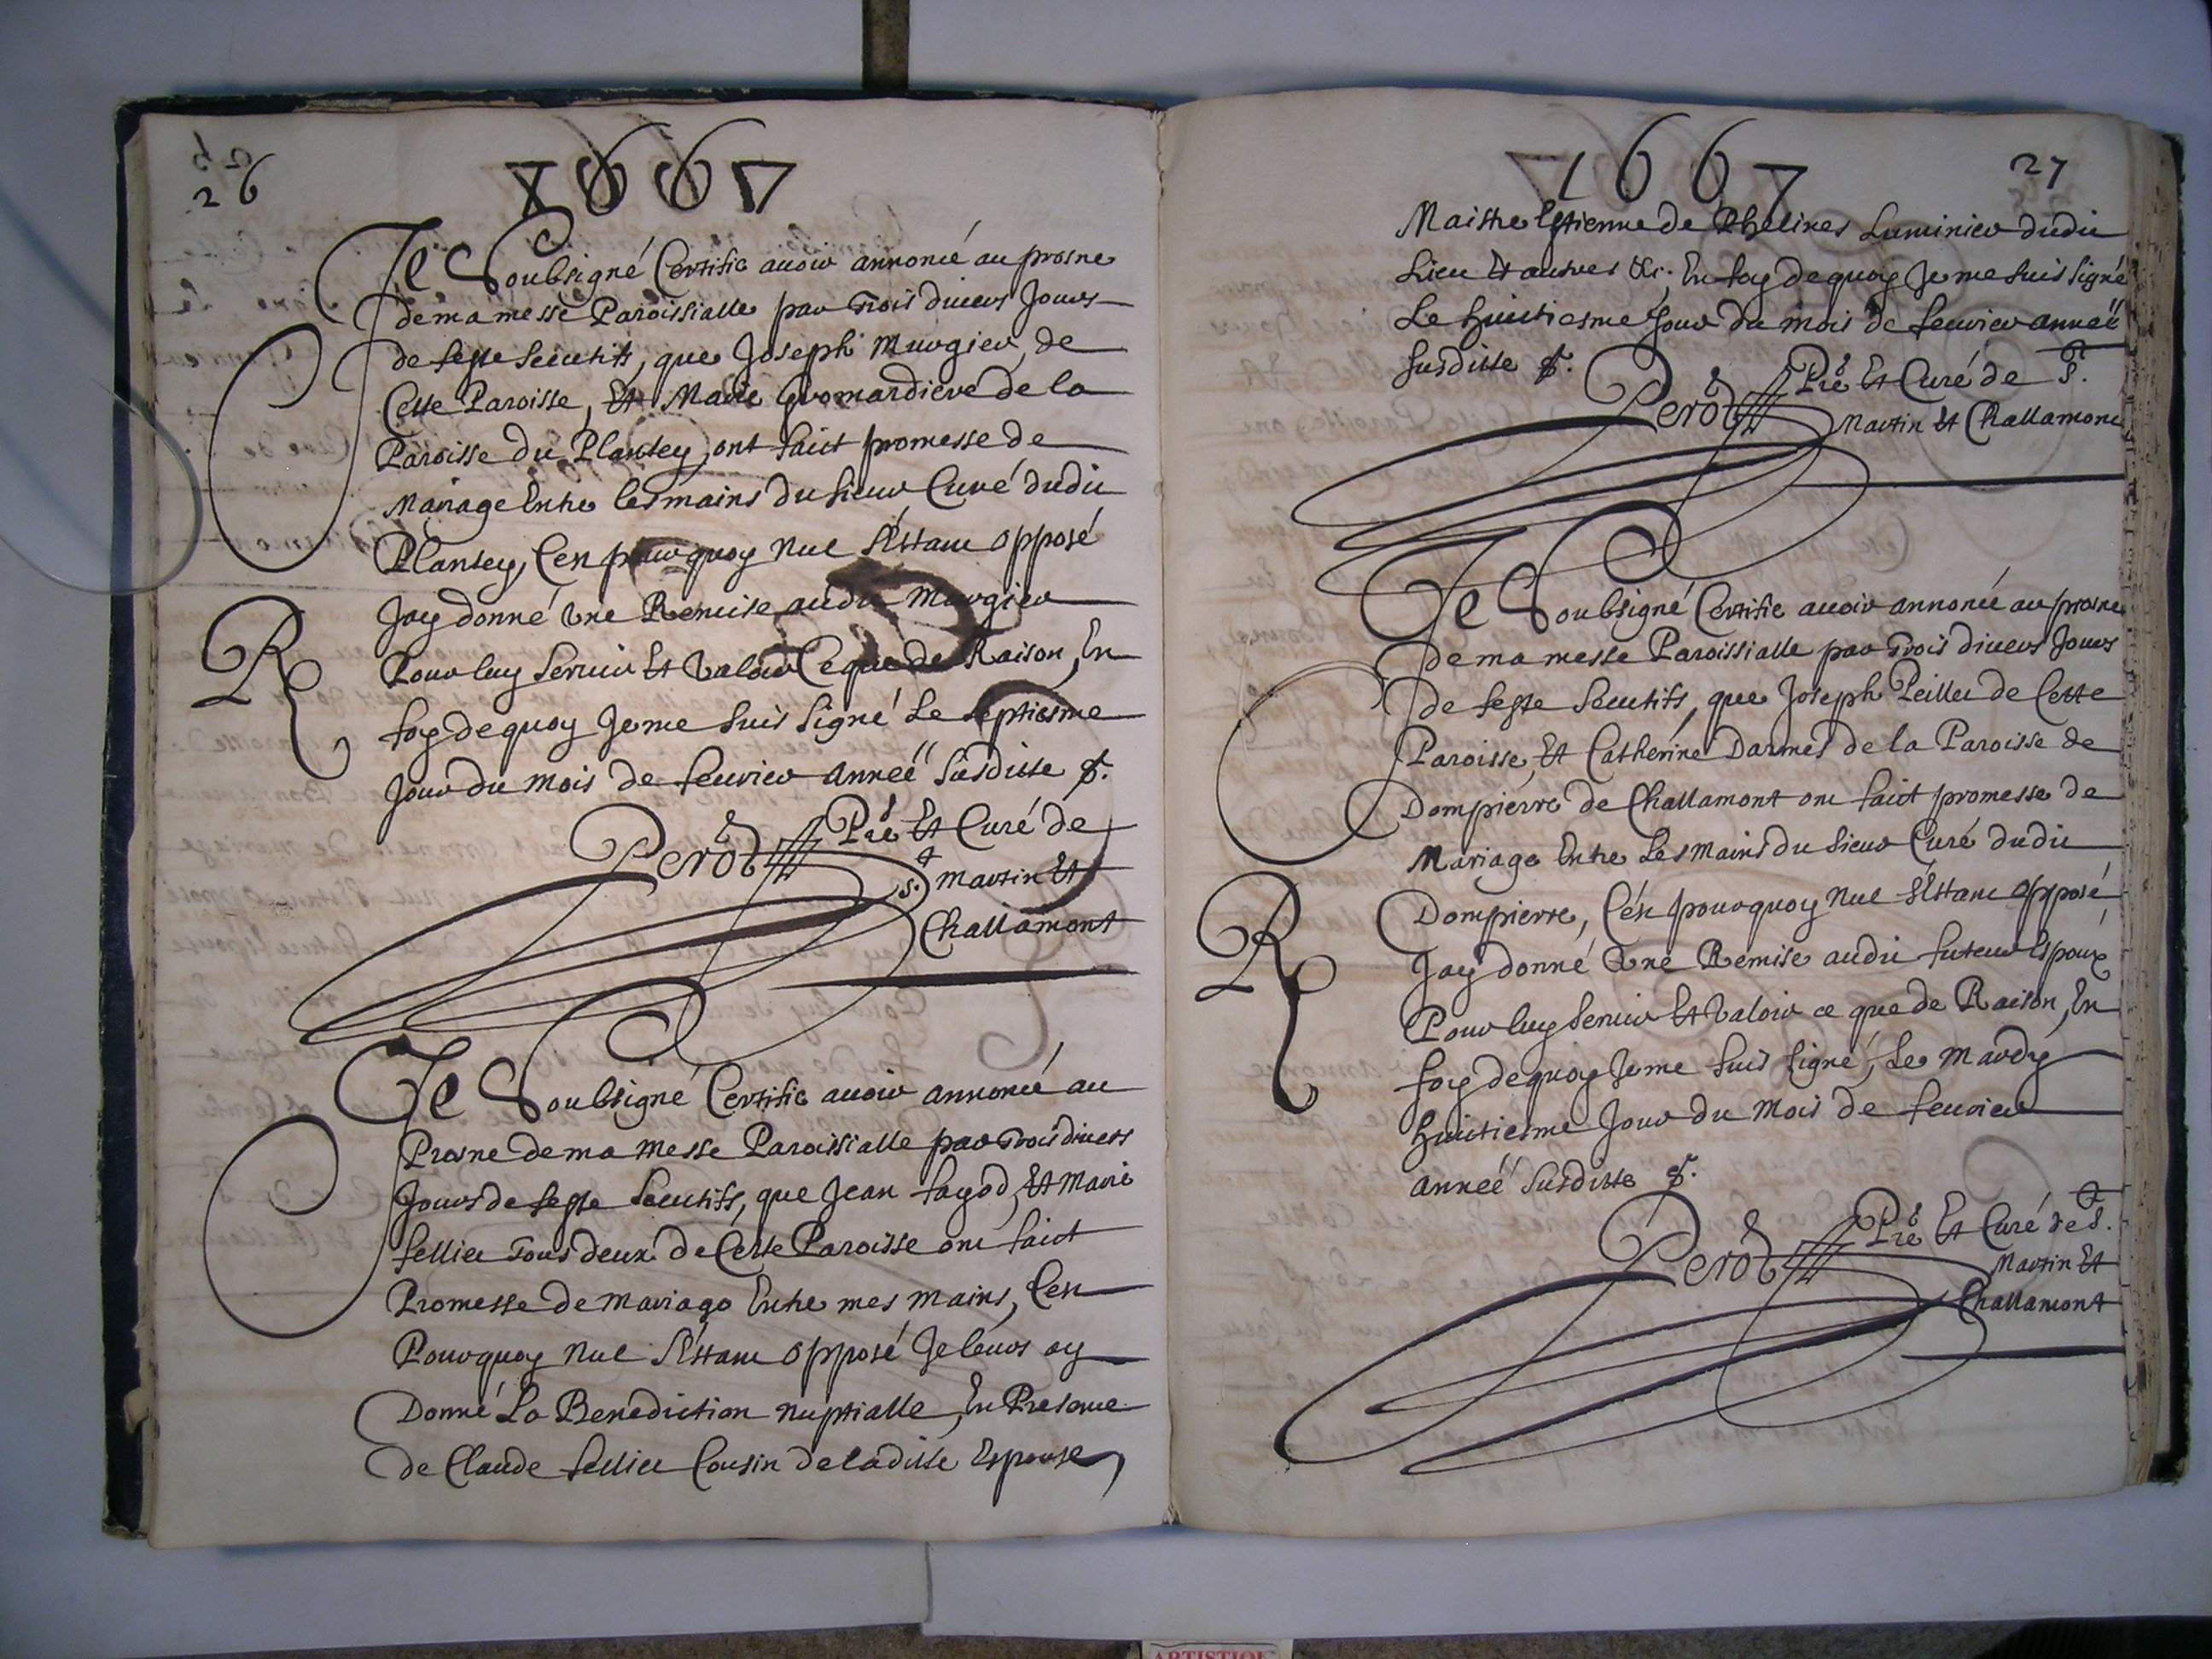 26
1667
Je Soubsigné Certifie auoir annoncé au prosne
de ma messe Paroissialle par Trois diuers Jours
de feste secutifs, que Joseph Murgier, de
Cette Paroisse, Et Marie Gromardiere de la
Paroisse du Plantey, ont faict promesse de
Mariage Entre les mains du sieur Curé dudit
Plantey, C'est pourquoy nul s'estant opposé
J'ay donné Vne Remise audit Murgier
R
Pour luy seruir Et Valoir Ce que de Raison, En
foy de quoy Je me suis signé Le septiesme
Jour du mois de feurier Anneé susditte &.
Perod Pre Et Curé de
St Martin Et
Challamont
Je Soubsigné Certifie auoir annoncé au
Prosne de ma Messe Paroissialle par Trois diuers
Jours de feste Secutifs, que Jean fayod, Et Marie
fellier Tous deux de Cette Paroisse ont faict
Promesse de Mariage Entre mes mains, C'est
Pourquoy nul s'estant opposé Je leurs ay
Donné La Benediction nuptialle, En Presence
de Claude fellier Cousin de laditte Espouse,
27
1667
Maistre Estienne de Phelines Luminier dudit
Lieu Et autres &c. En foy de quoy Je me suis signé
Le Huitiesme Jour du mois de feurier anneé
susditte &.
Perod Pre Et Curé de St
Martin Et Challamont
Je Soubsigné Certifie auoir annoncé au prosne
de ma messe Paroissialle par Trois diuers Jours
de feste Secutifs, que Joseph Peillet de Cette
Paroisse, Et Catherine Darmes de la Paroisse de
Dompierre de Challamont ont faict promesse de
Mariage Entre Les Mains du sieur Curé dudit
Dompierre, C'est pourquoy nul s'estant opposé
R
J'ay donné Vne Remise audit futeur Espoux
Pour luy seruir Et Valoir ce que de Raison, En
foy de quoy Je me suis signé, Le Mardy
Huitiesme Jour du Mois de feurier
anneé susditte &.
Perod Pre Et Curé de St
Martin Et
Challamont
ARTISTIQUE